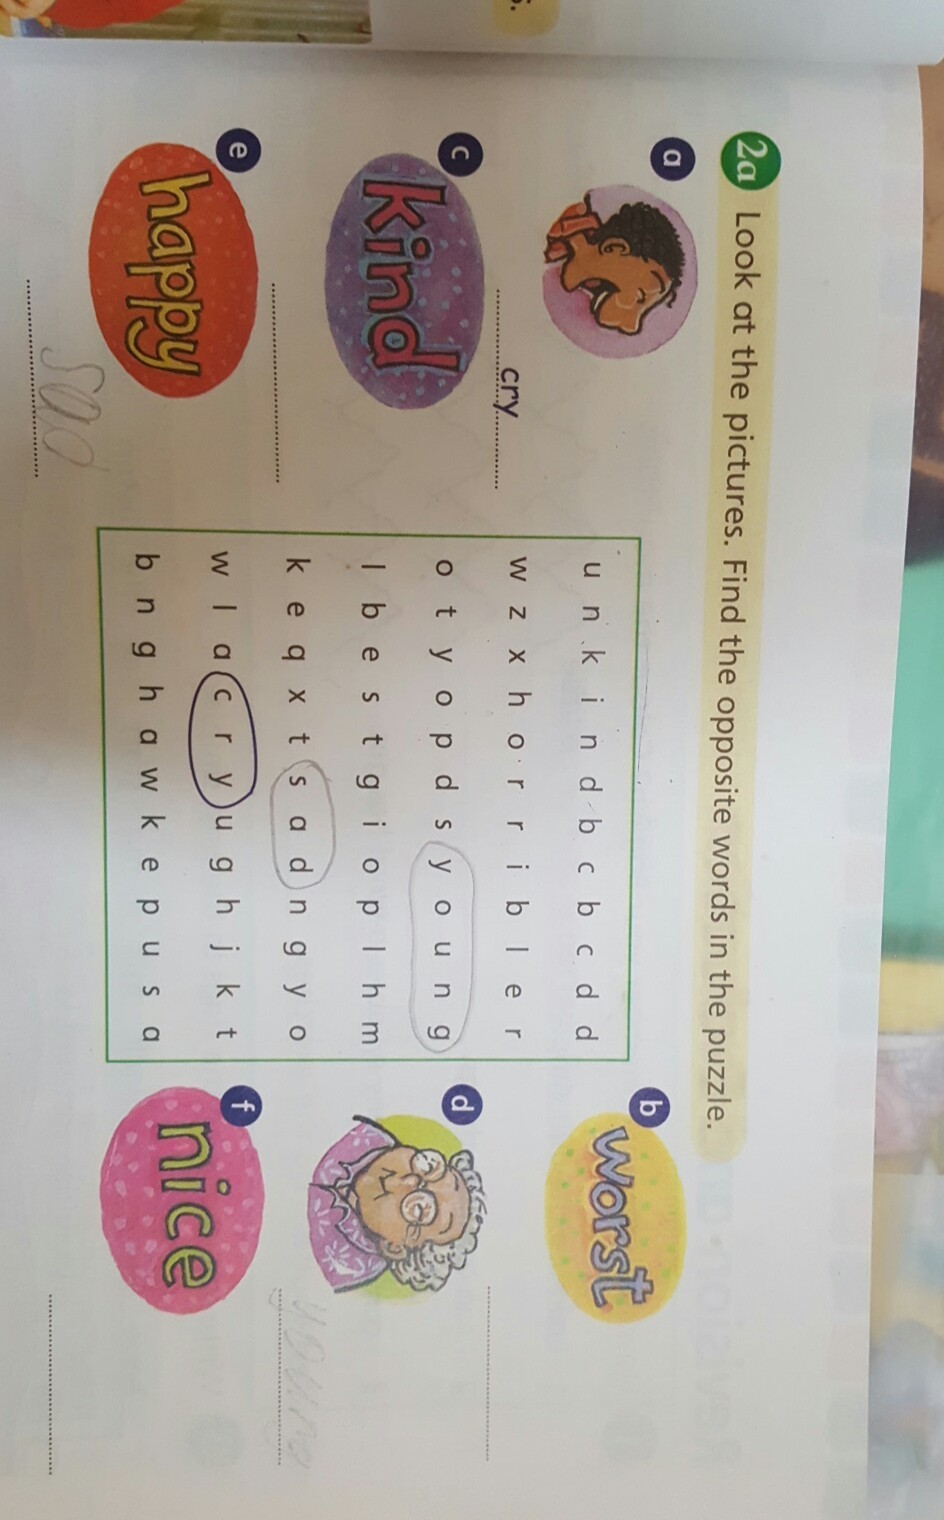 2a Look at the pictures. Find the opposite words in the puzzle.
a
cry
b
worst
c
kind
d
young
e
happy
sad
f
nice
u n k i n d b c b c d d
w z x h o r r i b l e r
o t y o p d s y o u n g
l b e s t g i o p l h m
k e q x t s a d n g y o
w l a c r y u g h j k t
b n g h a w k e p u s a